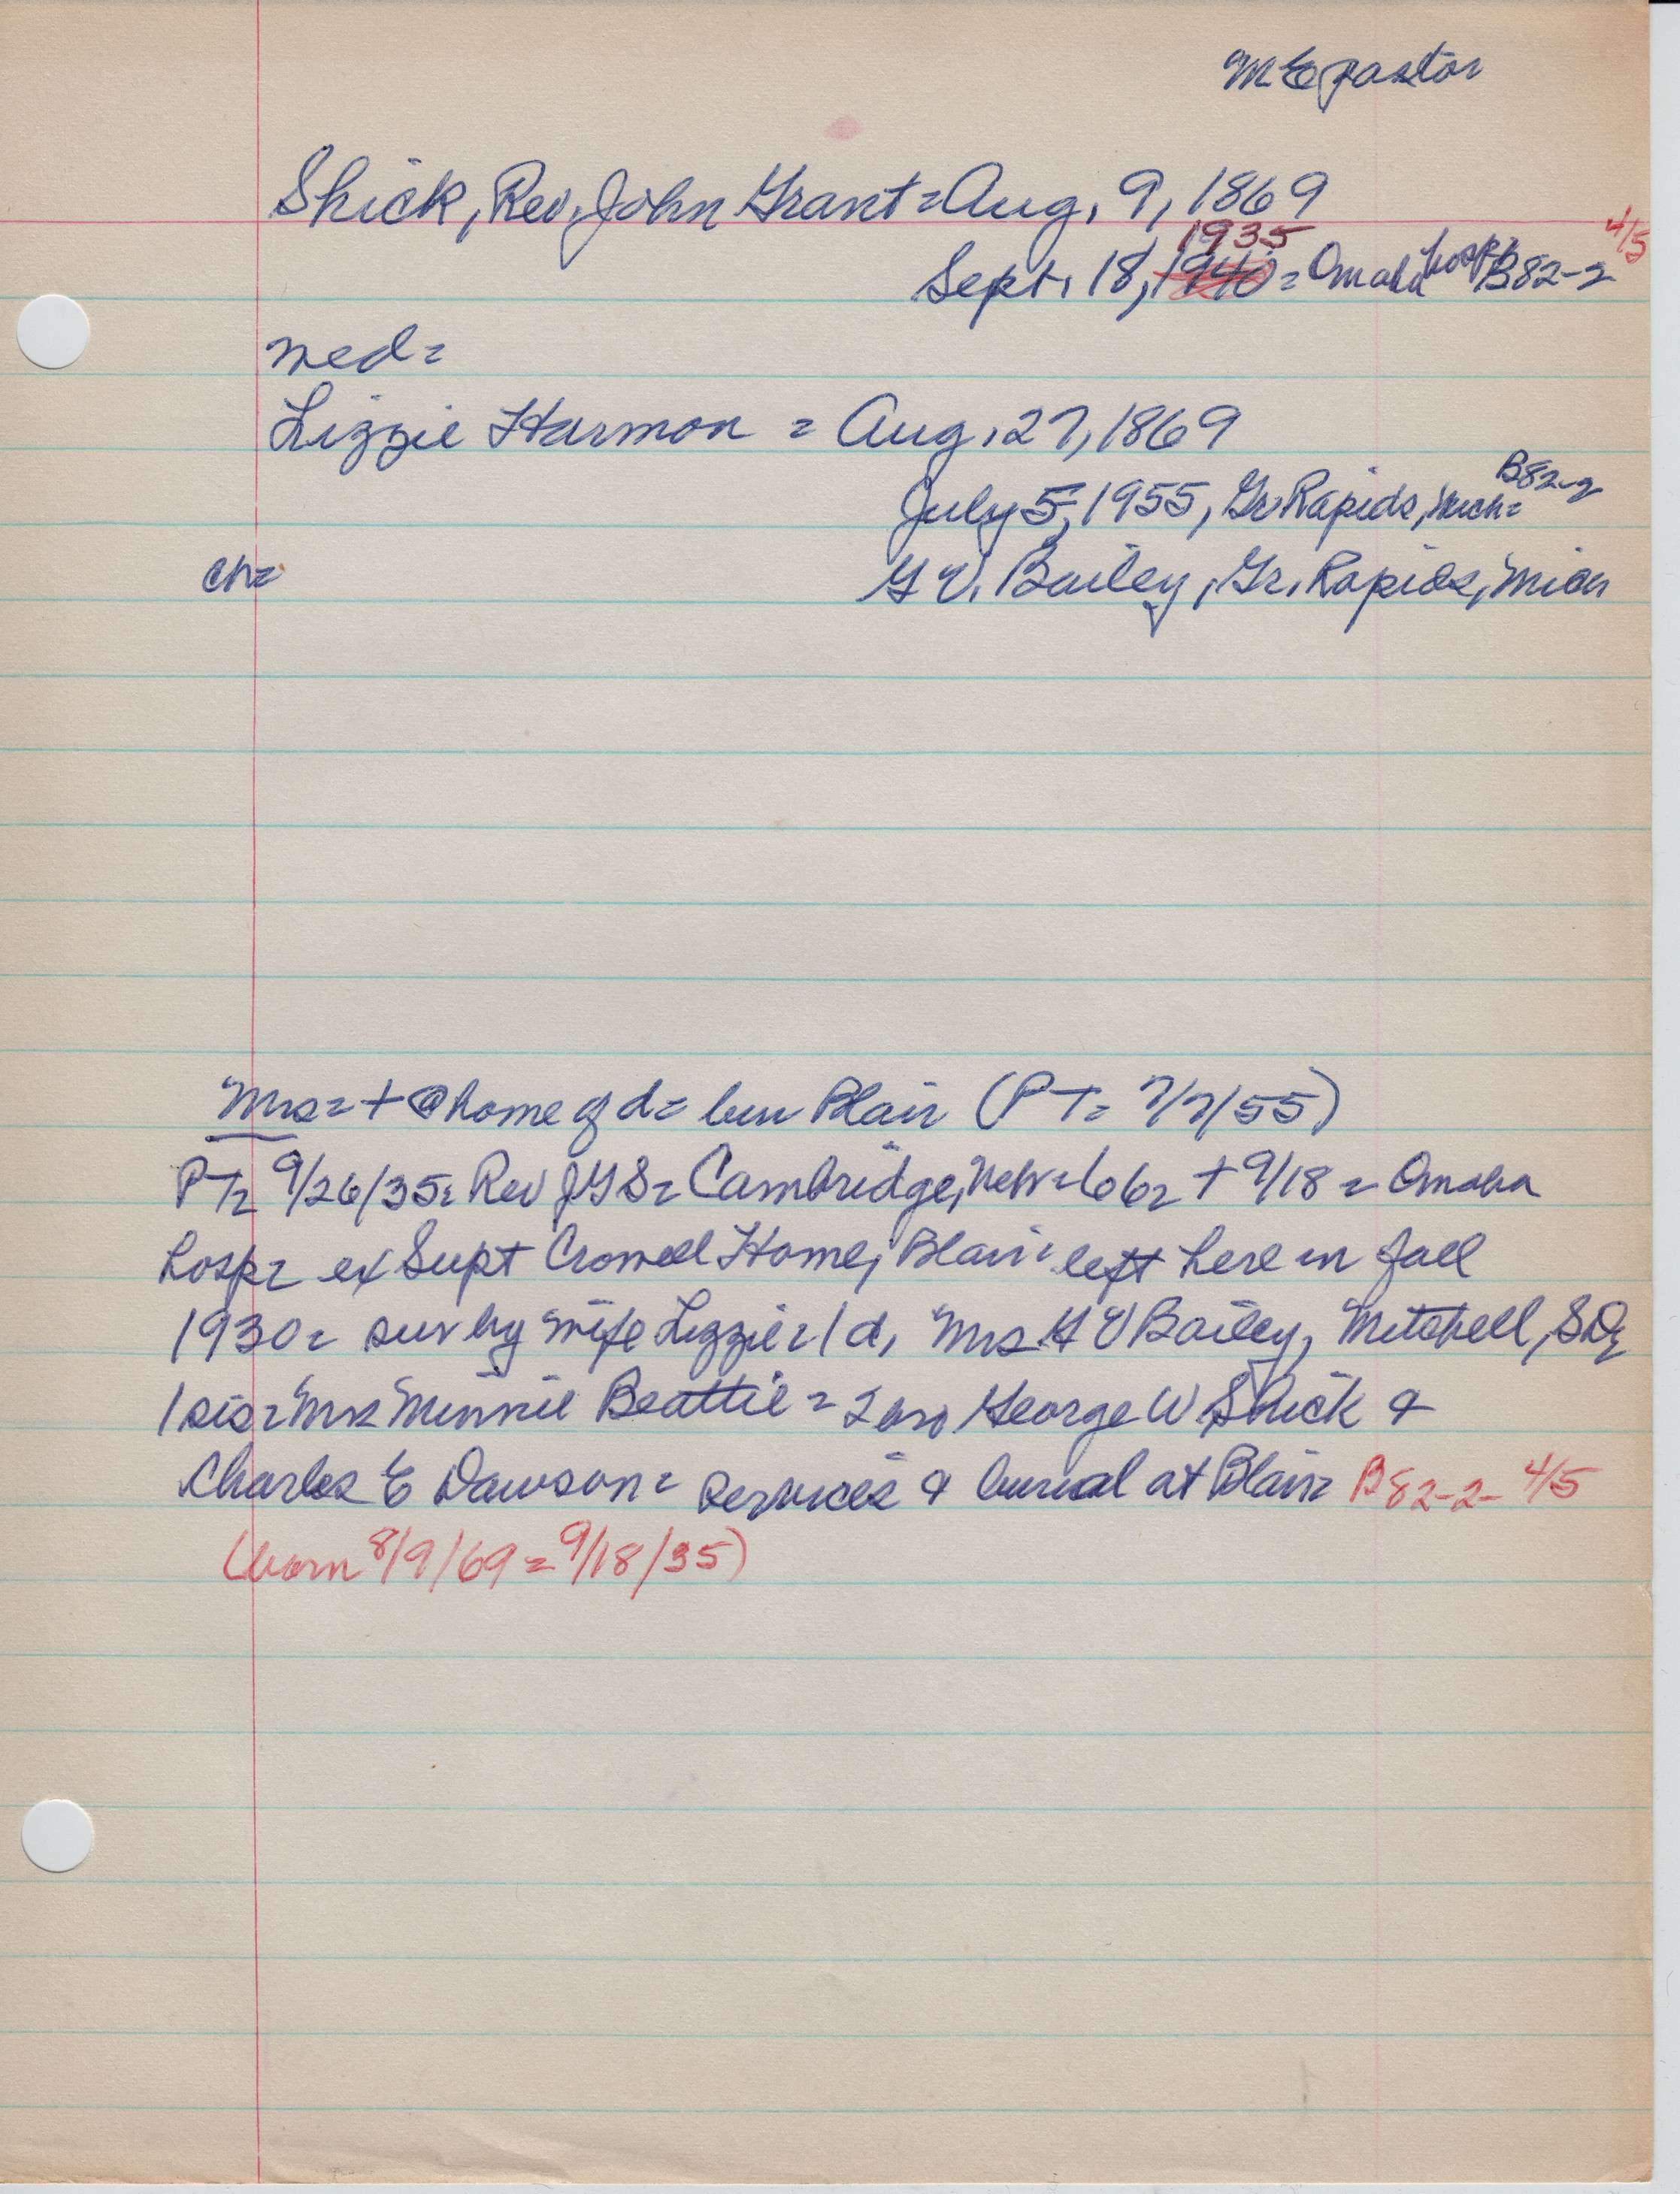 M E pastor
Shick, Rev. John Grant = Aug. 9, 1869
1935 4/5
Sept. 18, 1940 = Omaha hosp B82-2
med=
Lizzie Harmon = Aug. 27, 1869
B82-2
July 5, 1955, Gr Rapids, Mich=
ch= G V. Bailey, Gr. Rapids, Mich
Mrs = + @ home of d = bur Blair (PT = 7/7/55)
PT= 9/26/35= Rev JGS = Cambridge, Neb = 66= + 9/18 = Omaha
hosp= ex Supt Crowell Home, Blair= left here in fall
1930= sur by wife Lizzie = 1 d, Mrs G V Bailey, Mitchell, SD=
1 sis= Mrs Minnie Beattie = 2 bro George W Shick &
Charles E Dawson= services & burial at Blair= B82-2- 4/5
(born 8/9/69 = 9/18/35)